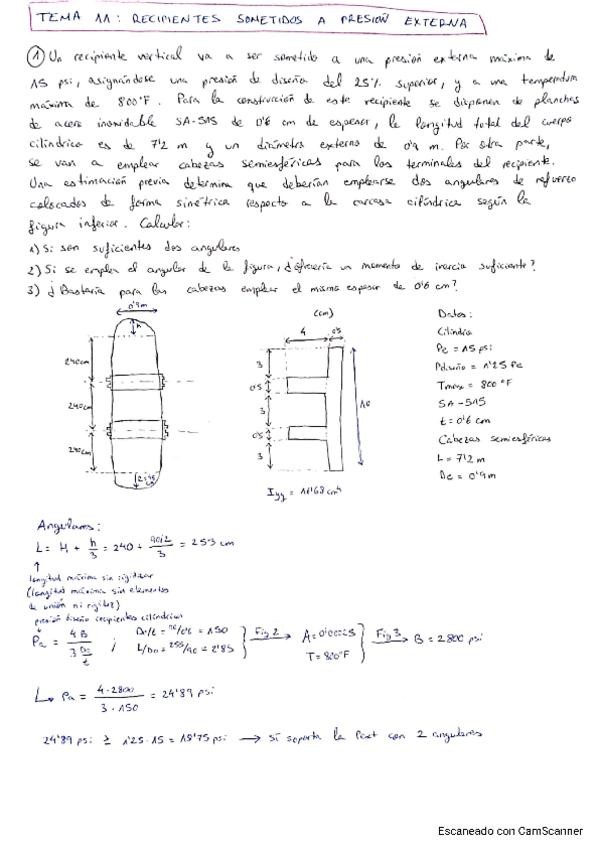 TEMA 11: RECIPIENTES SOMETIDOS A PRESIÓN EXTERNA
① Un recipiente vertical va a ser sometido a una presión externa máxima de
15 psi, asignándose una presión de diseño del 25% superior, y a una temperatura
máxima de 800°F. Para la construcción de este recipiente se disponen de planchas
de acero inoxidable SA-515 de 0'6 cm de espesor, la longitud total del cuerpo
cilíndrico es de 7'2 m y un diámetro externo de 0'9 m. Por otra parte,
se van a emplear cabezas semiesféricas para los terminales del recipiente.
Una estimación previa determina que deberían emplearse dos angulares de refuerzo
colocados de forma simétrica respecto a la carcasa cilíndrica según la
figura inferior. Calcular:
1) Si son suficientes dos angulares
2) Si se emplea el angular de la figura, ¿ofrecería un momento de inercia suficiente?
3) ¿Bastaría para las cabezas emplear el mismo espesor de 0'6 cm?
0'9m
h
240cm
240cm
240cm
(cm)
4
0'5
3
0'5
3
0'5
3
10
Iyy = 11'68 cm⁴
Datos:
Cilindro
Pe = 15 psi
Pdiseño = 1'25 Pe
Tmax = 800 °F
SA-515
t = 0'6 cm
Cabezas semiesféricas
L = 7'2 m
De = 0'9 m
Angulares:
L = H + h/3 = 240 + (90/2)/3 = 255 cm
↑
longitud máxima sin rigidizar
(longitud máxima sin elementos
de unión ni rigidez)
presión diseño recipientes cilíndricos
Pa = 4B / (3 Do/t) ; Do/t = 90/0'6 = 150
L/Do = 255/90 = 2'85
Fig 2 → A = 0'00025
T = 800°F
Fig 3 → B = 2800 psi
↳ Pa = (4·2800)/(3·150) = 24'89 psi
24'89 psi ≥ 1'25·15 = 18'75 psi → Sí soporta la Pext con 2 angulares
Escaneado con CamScanner